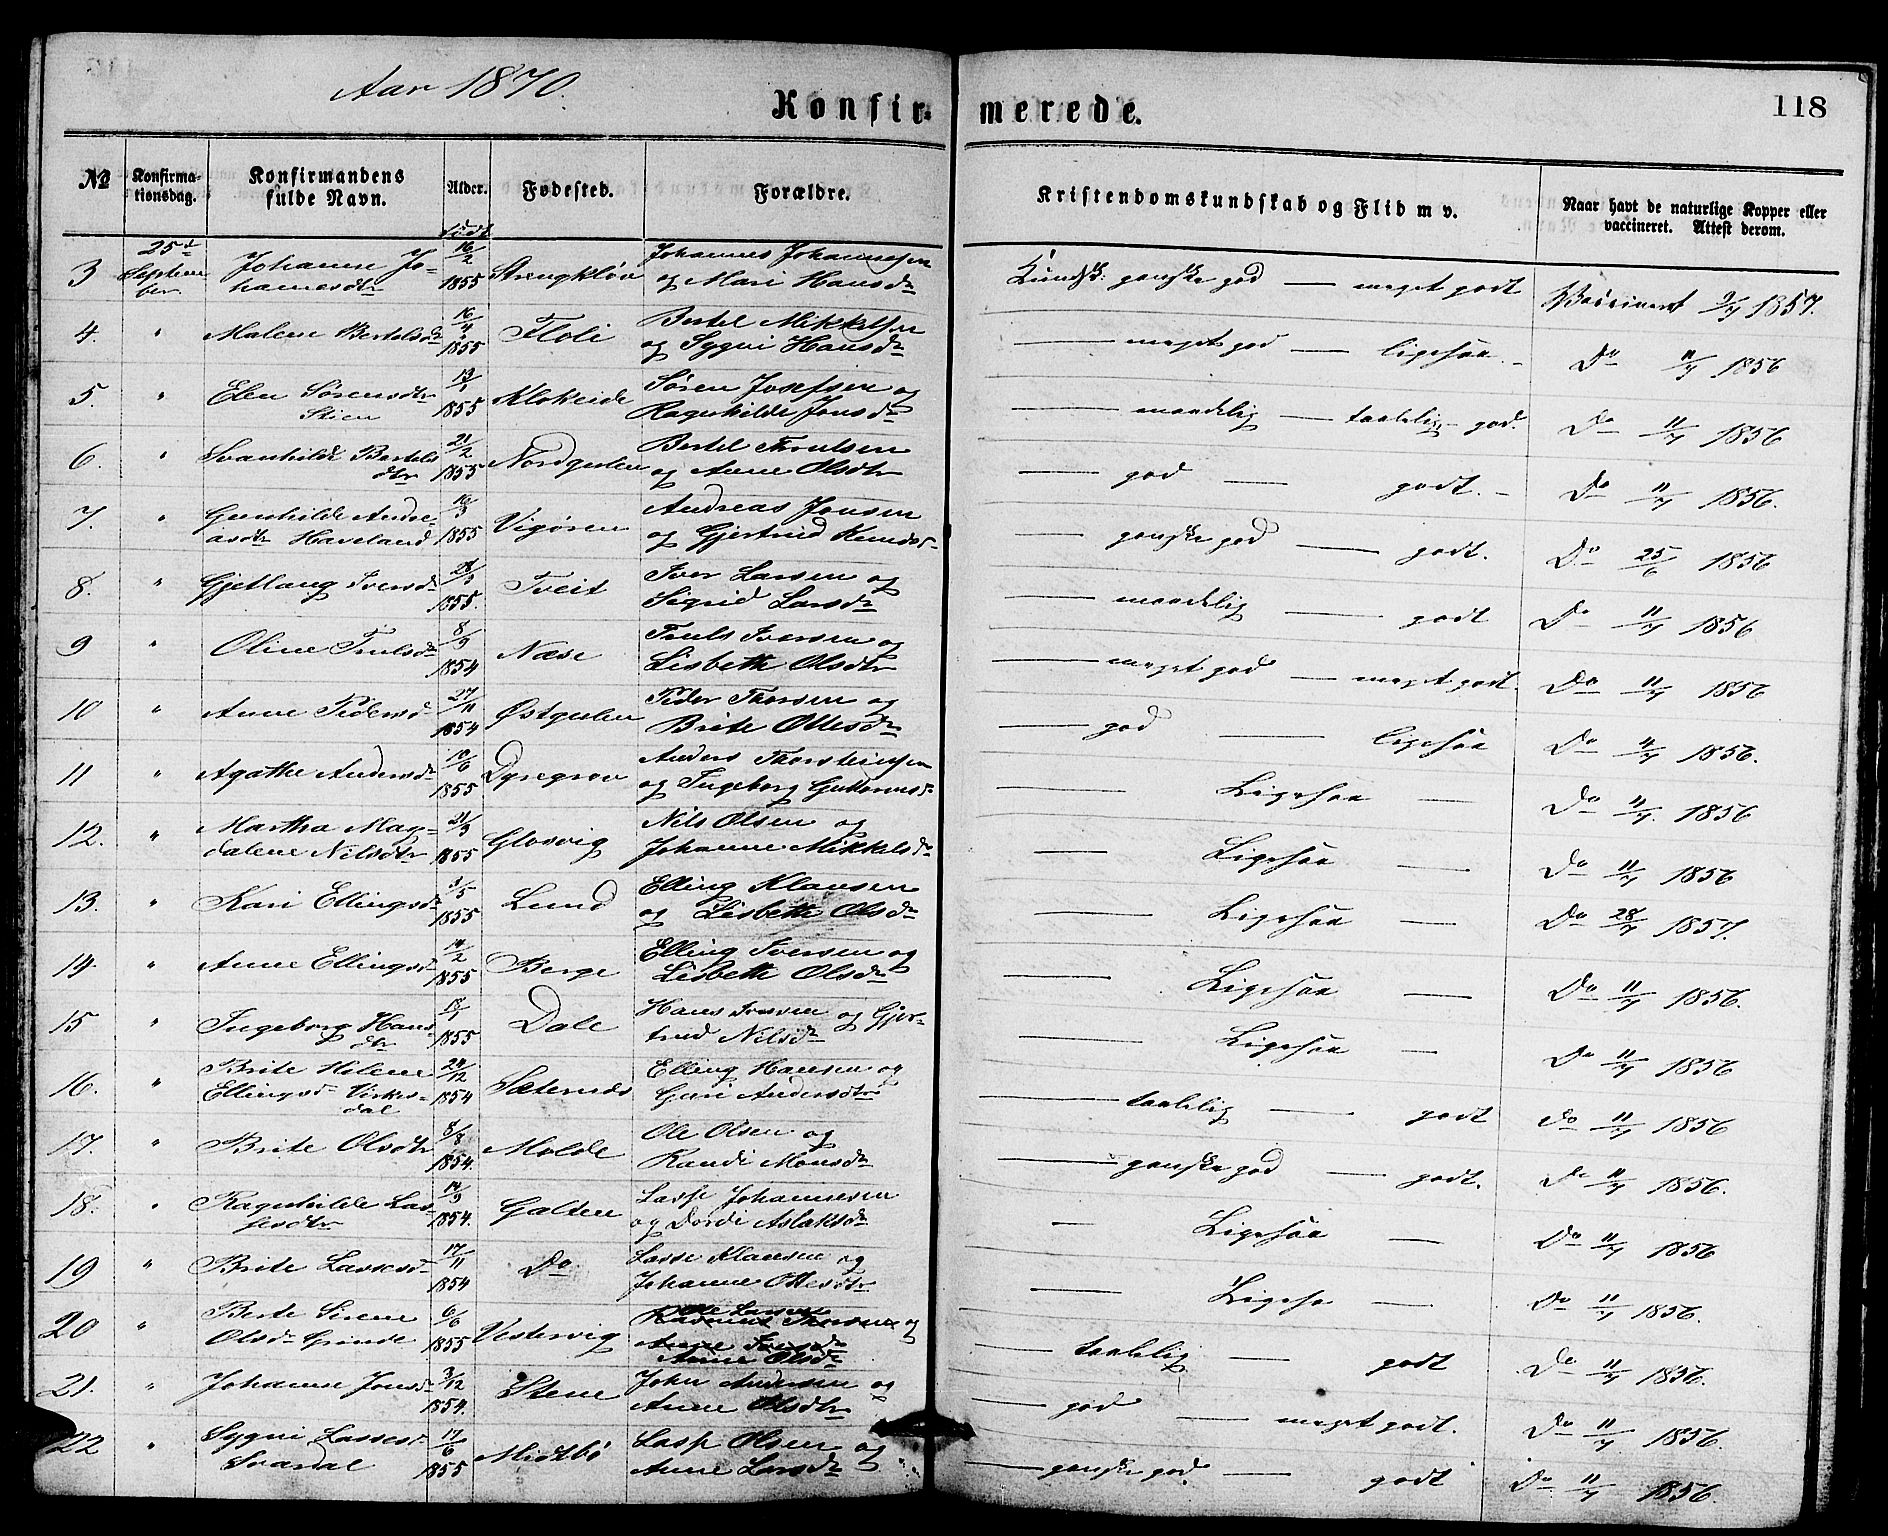 Aar 1870.
Konfir- merede.
118
No
Konfirma-
tionsdag.
Konfirmandens
fulde Navn.
Alder.
Fødested.
Forældre.
Kristendomskundskab og Flid m v.
Naar havt de naturlige Kopper eller
vaccineret. Attest derom.
født
3 25d Septem- ber Johanne Jo- hannesdtr 16/2 1855 Strengkløv Johannes Johannesen og Mari Hansdr Kundsk: ganske god — meget godt Vaccineret 9/7 1857.
4. " Malene Bertelsdr 16/4 1855 Floli Bertel Mikkelsen og Sygni Hansdr — meget god — ligesaa — Do 11/7 1856
5. " Elen Sørensdtr Stien 13/1 1855 Klokeide Søren Josefsen og Ragnhilde Jonsdr — maadelig — taalelig god. Do 11/7 1856
6. " Svanhilde Bertels dtr 21/2 1855 Nordgulen Bertel Troulsen og Anne Olsdtr — god — godt. — Do 11/7 1856.
7. " Gunhilde Andre- asdtr Haveland 1855 Vigøren Andreas Jonsen og Gjertrud — ganske god — godt. Do 25/6 1856
8. " Gjetlaug Iversdr 1855. Tveit Iver Larsen og Sigrid Larsdr — maadelig — godt Do 11/7 1856
9 " Oline Trulsdr 8/9 1854 Næse Truls Iversen og Lisbeth Olsdtr — meget god — meget godt. Do 11/7 1856
10 " Anne Pedersdr 27/11 1854 Østgulen Peder Thorsen og Brite Ottesdr — god — ligesaa Do 11/7 1856.
11 " Agathe Andersdr 1855 Dyregrov Anders Thorsteinsen og Ingeborg Guttormsdr — Ligesaa — Do 11/7. 1856
12. " Martha Mag- dalene Nilsdtr 21/3 1855 Glosvig Nils Olsen og Johanne Mikkelsdr — Ligesaa — Do 11/7 1856
13. " Kari Ellingsdr 3/5 1855 Lund Elling Klausen og Lisbeth Olsdr — Ligesaa — Do 28/7 1857.
14. " Anne Ellingsdr 14/2 1855 Berge Elling Iversen og Lisbeth Olsdr — Ligesaa — Do 11/7 1856.
15 " Ingeborg Hans- dtr 1855 Dale Hans Iversen og Gjer- trud Nilsdr — Ligesaa — Do 11/7 1856
16. " Brite Helene Ellingsdr Virkes- dal 24/12 1854 Sæternes Elling Hansen og Guri Andersdtr — taalelig — godt Do 11/7 1856
17. " Brite Olsdtr 8/8 1854. Molde Ole Olsen og Randi Monsdr — ganske god — godt. Do 11/7 1856.
18. " Ragnhilde Las- sesdtr 14/9 1854. Galten Lasse Johannesen og Dordi Aslaksdr — Ligesaa — Do 11/7 1856
19 " Brite Lassesdr 17/11 1854 Do Lasse Klausen og Johanne Ottesdtr — Ligesa — Do 11/7 1856.
20 " Berte Sirene Olsdr Grinde 6/6 1855 Vestervig Ole Larsen Rasmus Thorsen og Anne Iversdr Anne Olsdr — taalelig — godt Do 11/7 1856.
21. " Johanne Jonsdr 3/12 1854. Stene John Andersen og Anne Olsdtr — god — meget godt. Do 11/7 1856.
22 " Sygni Lassesdr Svardal 17/6 1855 Midtbø Lasse Olsen og Anne Larsdr — ganske god — godt Do 11/7 1856.